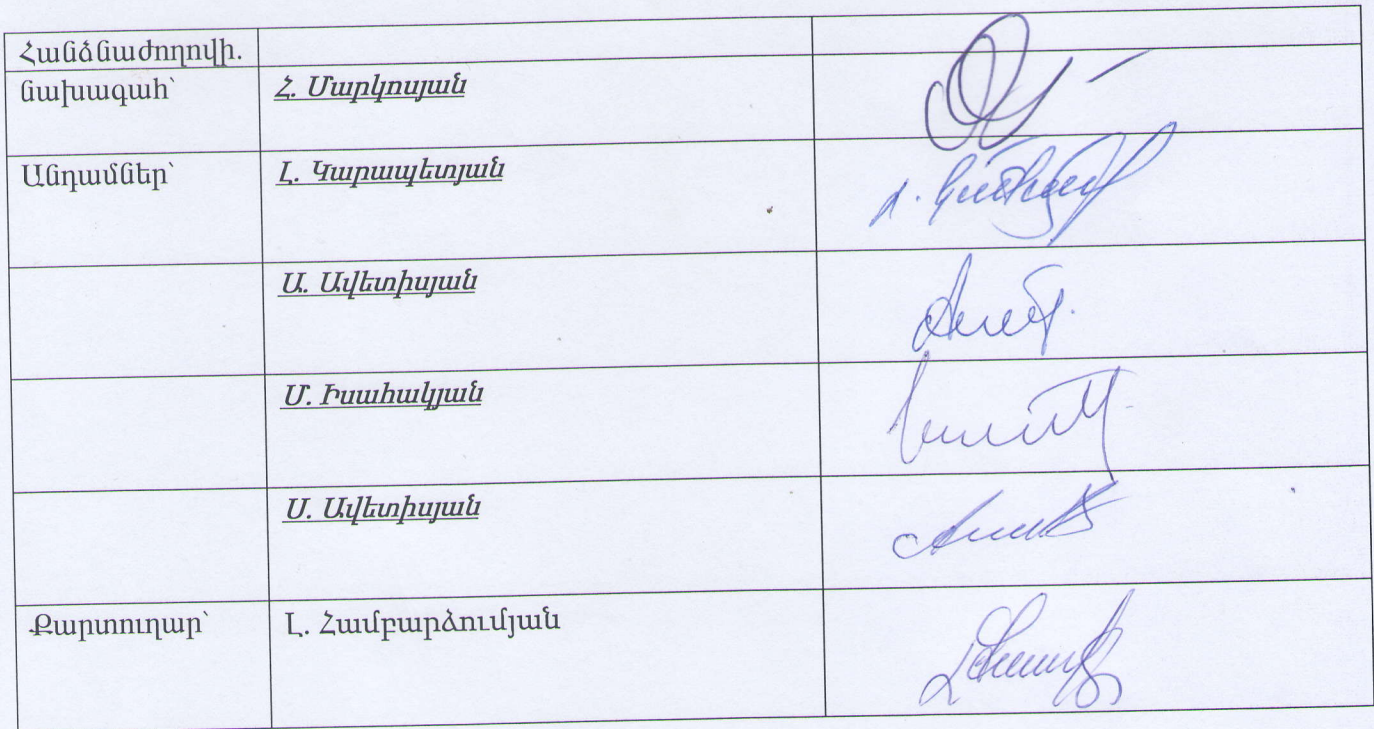 Հանձնաժողովի.
նախագահ՝ Հ. Մարկոսյան
Անդամներ՝ Լ. Կարապետյան
Ա. Ավետիսյան
Մ. Իսահակյան
Ս. Ավետիսյան
Քարտուղար՝ Լ. Համբարձումյան